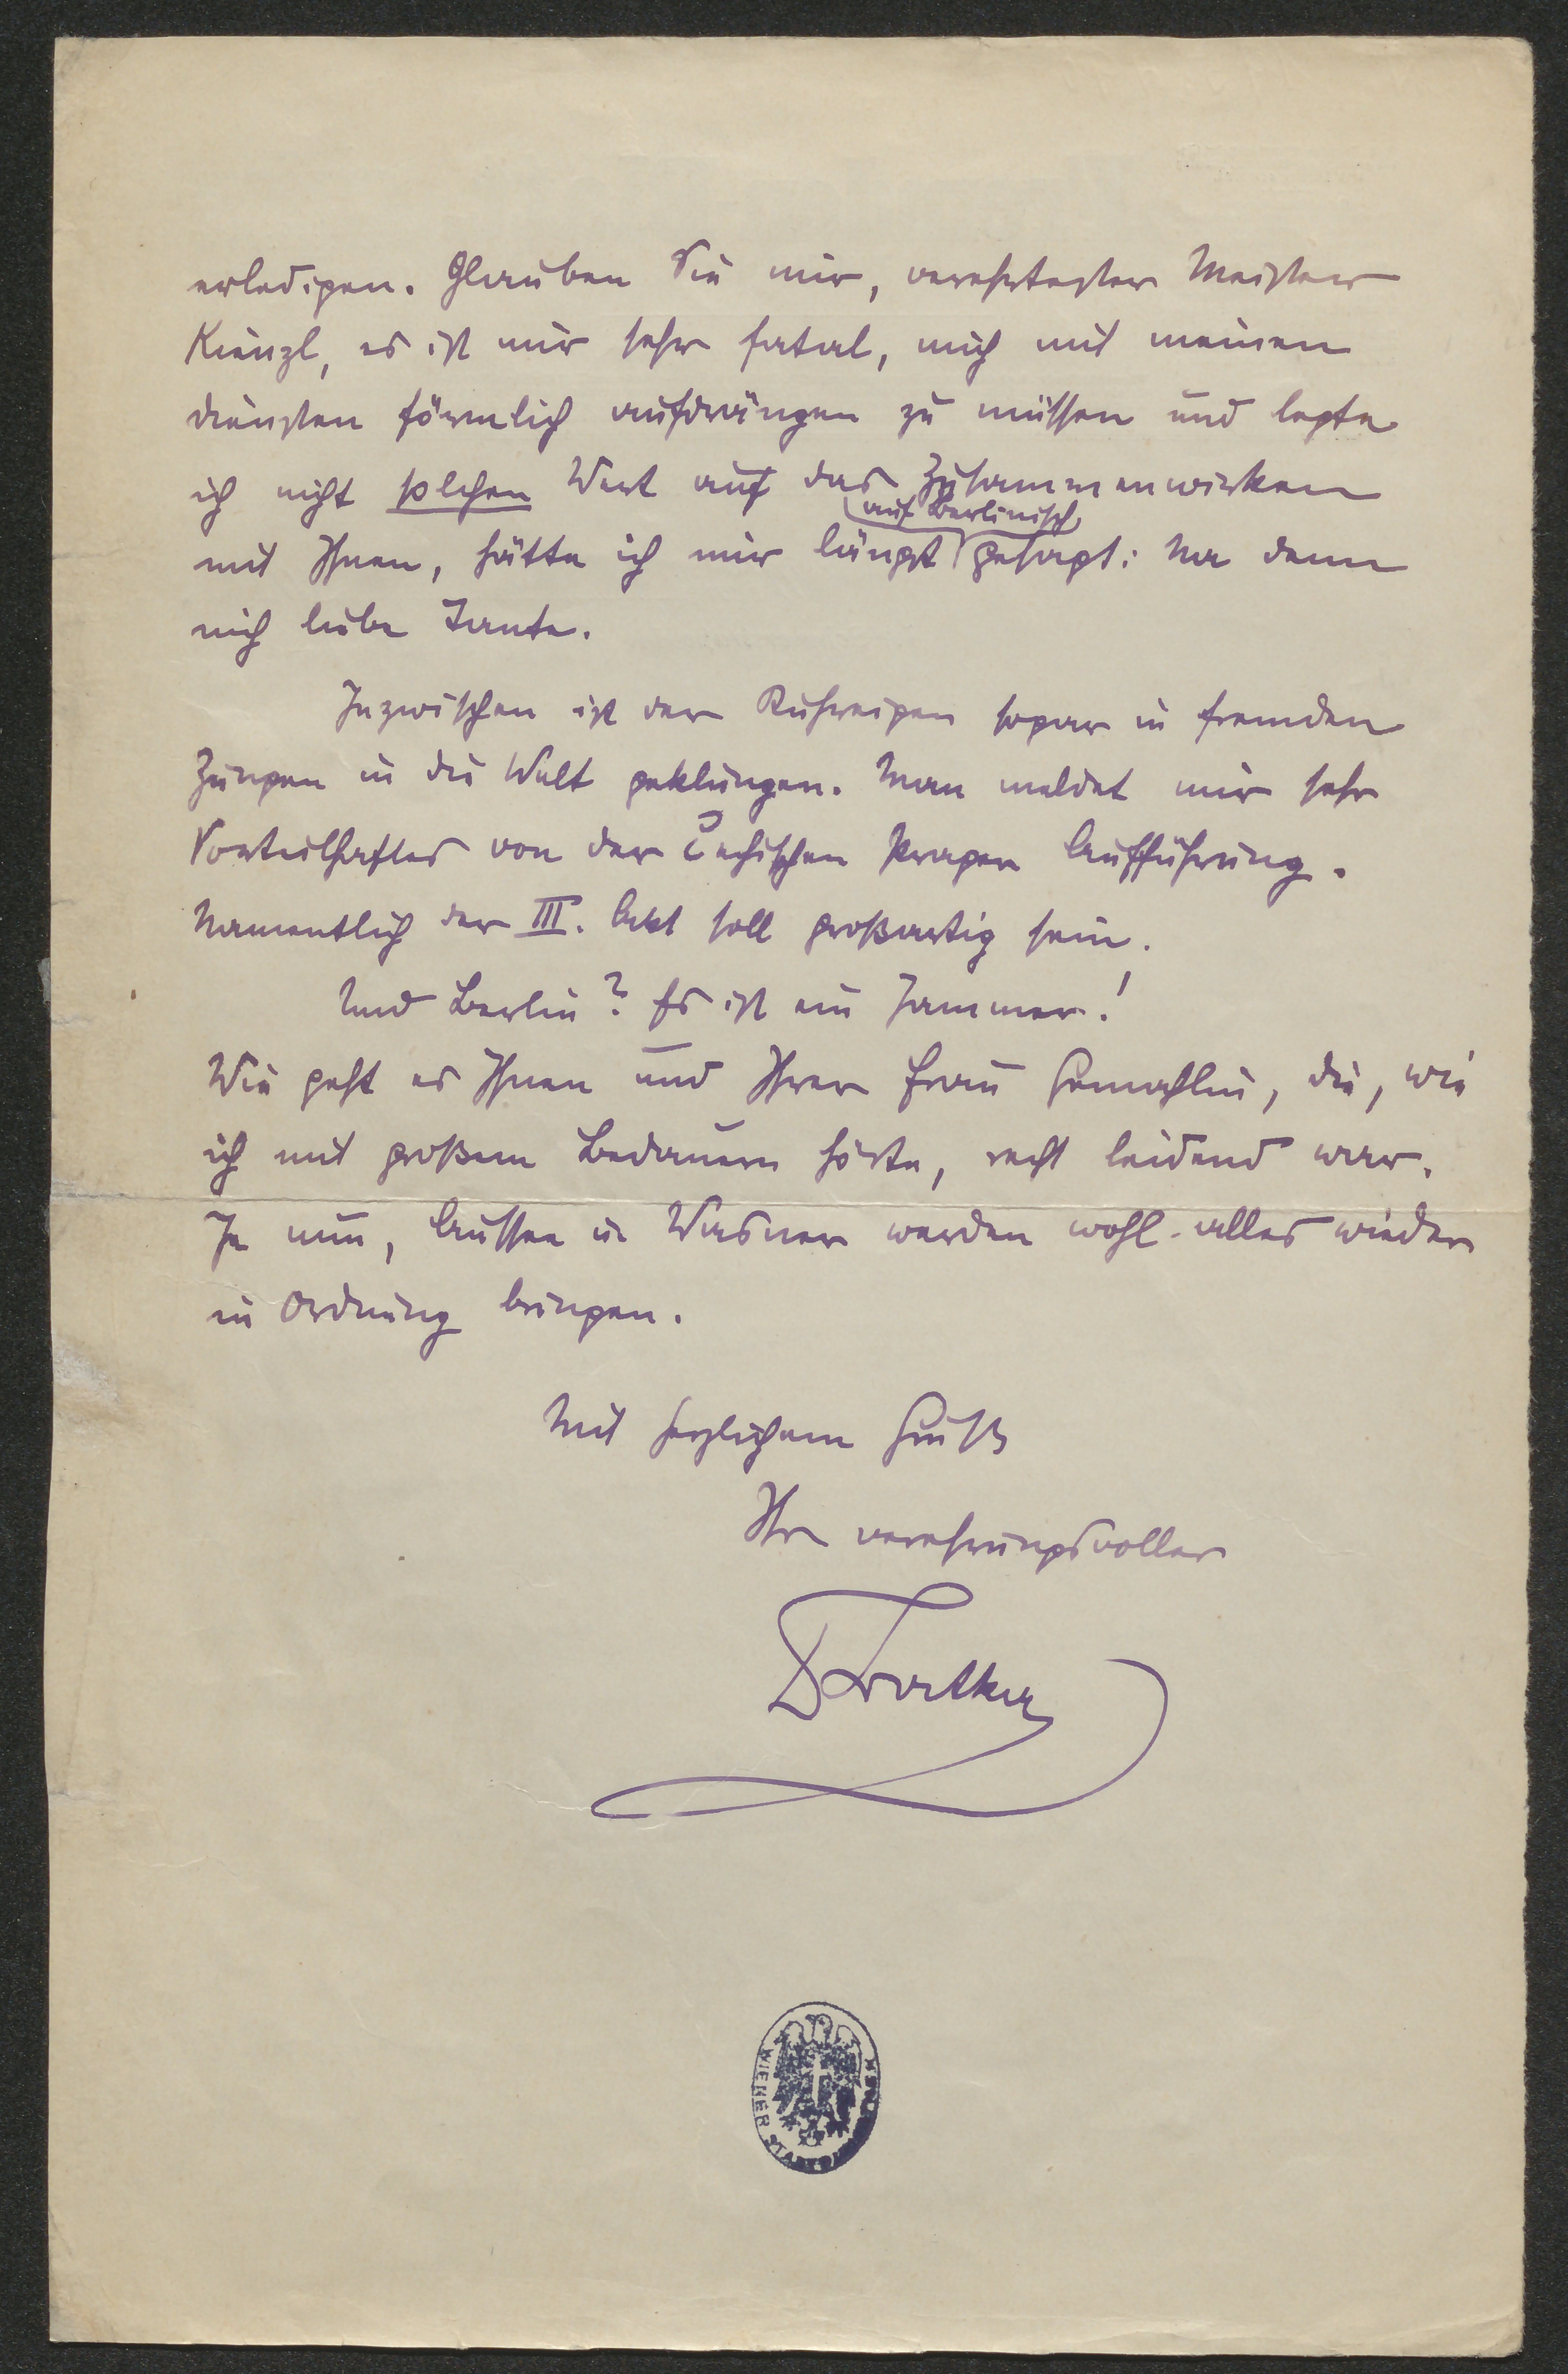 erledigen. Glauben Sie mir, verehrtester Meister
Kienzl, es ist mir sehr fatal, mich mit meinen
diensten förmlich aufdrängen zu müssen und legte
ich nicht solchen Wert auf das Zusammenwirken
auf Berlinisch
mit Ihnen, hätte ich mir längst gesagt: Na denn
nich liebe Tante.
Inzwischen ist der Kuhreigen sogar in fremden
Zungen in die Welt geklungen. Man meldet mir sehr
Vorteilhaftes von der čechischen Prager Aufführung.
Namentlich der III. Akt soll großartig sein.
Und Berlin? Es ist ein Jammer!
Wie geht es Ihnen und Ihrer Frau Gemahlin, die, wie
ich mit großem Bedauern hörte, recht leidend war.
Je nun, Aussee u Wasner werden wohl alles wieder
in Ordnung bringen.
Mit herzlichem Gruß
Ihr verehrungsvoller
WIENER